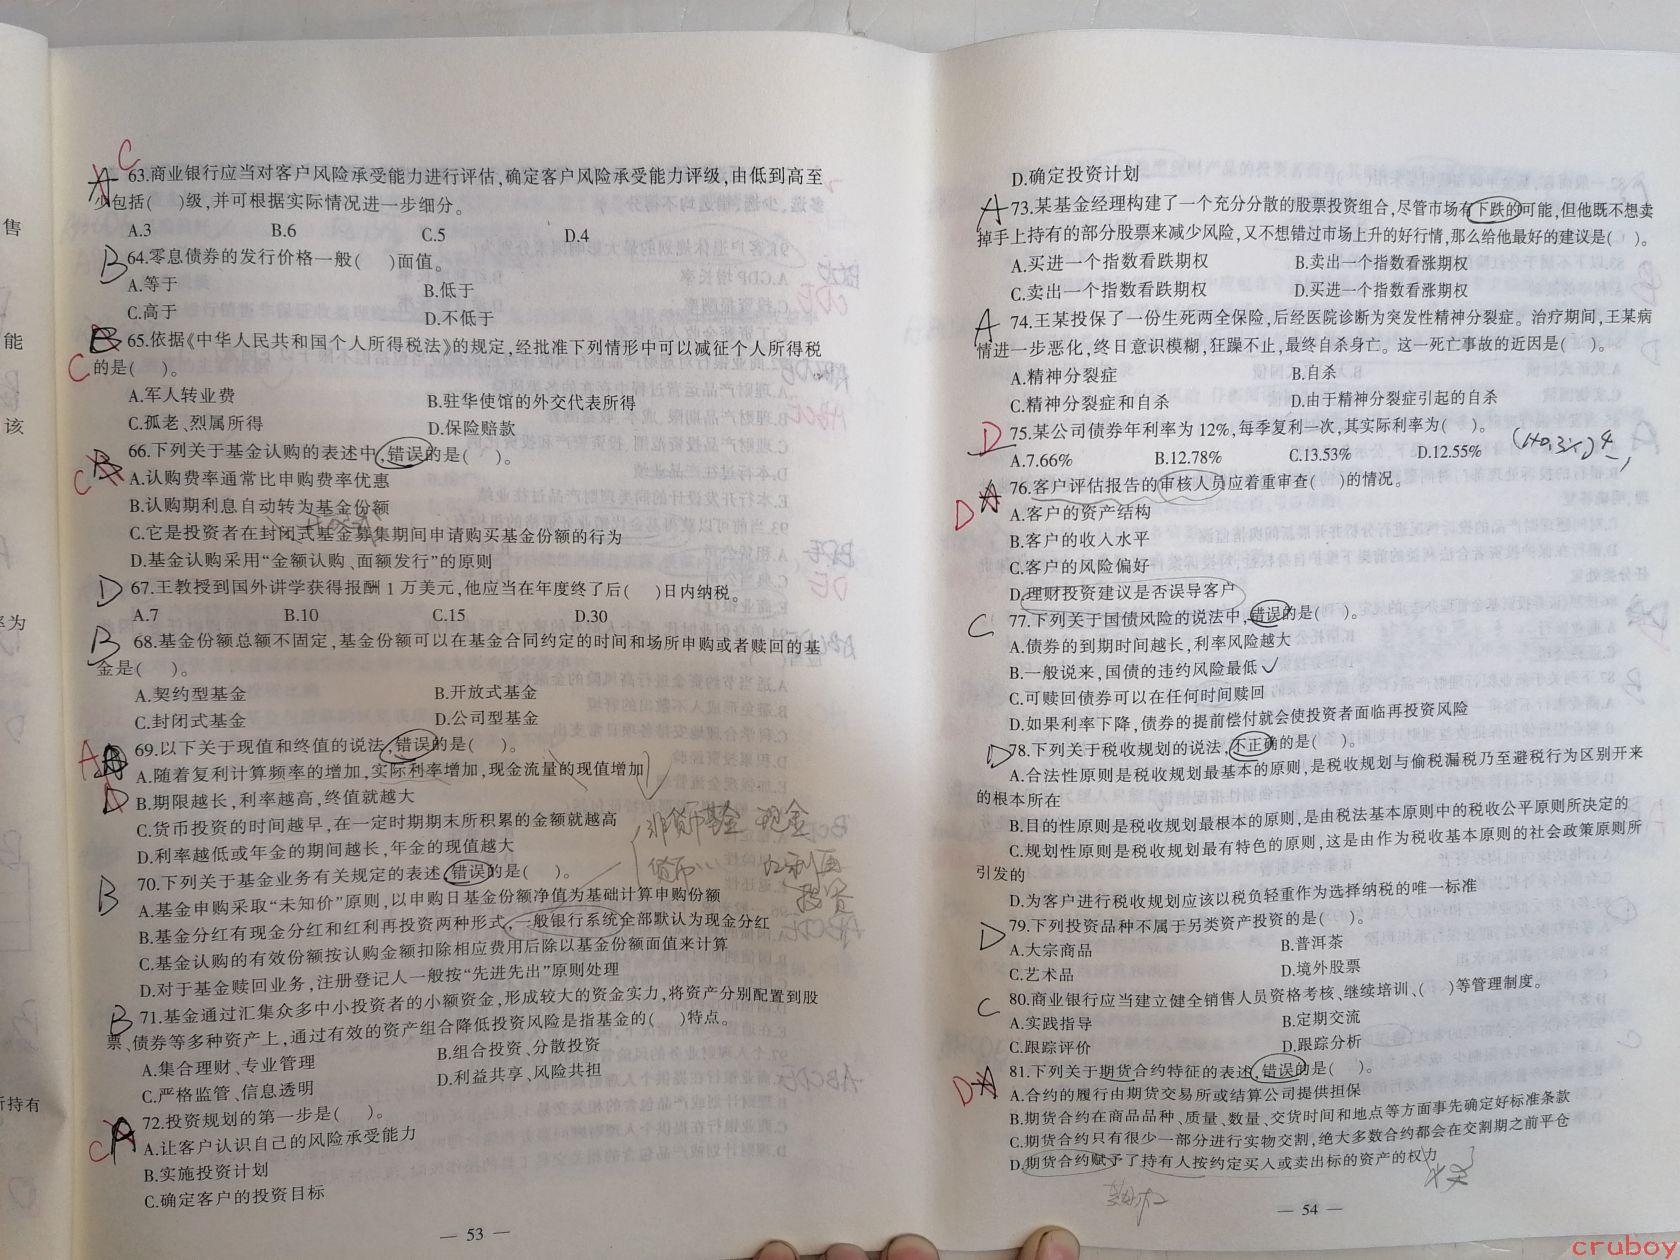 售
能
该
率为
所持有
C
A 63.商业银行应当对客户风险承受能力进行评估,确定客户风险承受能力评级,由低到高至
少包括(  )级,并可根据实际情况进一步细分。
A.3 B.6 C.5 D.4
B 64.零息债券的发行价格一般(  )面值。
A.等于 B.低于
C.高于 D.不低于
B 65.依据《中华人民共和国个人所得税法》的规定,经批准下列情形中可以减征个人所得税
C 的是(  )。
A.军人转业费 B.驻华使馆的外交代表所得
C.孤老、烈属所得 D.保险赔款
66.下列关于基金认购的表述中,错误的是(  )。
C B A.认购费率通常比申购费率优惠
B.认购期利息自动转为基金份额
C.它是投资者在封闭式基金募集期间申请购买基金份额的行为
D.基金认购采用“金额认购、面额发行”的原则
D 67.王教授到国外讲学获得报酬1万美元,他应当在年度终了后(  )日内纳税。
A.7 B.10 C.15 D.30
B 68.基金份额总额不固定,基金份额可以在基金合同约定的时间和场所申购或者赎回的基
金是(  )。
A.契约型基金 B.开放式基金
C.封闭式基金 D.公司型基金
A 69.以下关于现值和终值的说法,错误的是(  )。
A.随着复利计算频率的增加,实际利率增加,现金流量的现值增加
B.期限越长,利率越高,终值就越大
C.货币投资的时间越早,在一定时期期末所积累的金额就越高
D.利率越低或年金的期间越长,年金的现值越大
非货币基金 现金
货币 红利再
投资
B 70.下列关于基金业务有关规定的表述,错误的是(  )。
A.基金申购采取“未知价”原则,以申购日基金份额净值为基础计算申购份额
B.基金分红有现金分红和红利再投资两种形式,一般银行系统全部默认为现金分红
C.基金认购的有效份额按认购金额扣除相应费用后除以基金份额面值来计算
D.对于基金赎回业务,注册登记人一般按“先进先出”原则处理
B 71.基金通过汇集众多中小投资者的小额资金,形成较大的资金实力,将资产分别配置到股
票、债券等多种资产上,通过有效的资产组合降低投资风险是指基金的(  )特点。
A.集合理财、专业管理 B.组合投资、分散投资
C.严格监管、信息透明 D.利益共享、风险共担
72.投资规划的第一步是(  )。
C A A.让客户认识自己的风险承受能力
B.实施投资计划
C.确定客户的投资目标
— 53 —
D.确定投资计划
A 73.某基金经理构建了一个充分分散的股票投资组合,尽管市场有下跌的可能,但他既不想卖
掉手上持有的部分股票来减少风险,又不想错过市场上升的好行情,那么给他最好的建议是(  )。
A.买进一个指数看跌期权 B.卖出一个指数看涨期权
C.卖出一个指数看跌期权 D.买进一个指数看涨期权
A 74.王某投保了一份生死两全保险,后经医院诊断为突发性精神分裂症。治疗期间,王某病
情进一步恶化,终日意识模糊,狂躁不止,最终自杀身亡。这一死亡事故的近因是(  )。
A.精神分裂症 B.自杀
C.精神分裂症和自杀 D.由于精神分裂症引起的自杀
D 75.某公司债券年利率为12%,每季复利一次,其实际利率为(  )。
A.7.66% B.12.78% C.13.53% D.12.55%
76.客户评估报告的审核人员应着重审查(  )的情况。
D A A.客户的资产结构
B.客户的收入水平
C.客户的风险偏好
D.理财投资建议是否误导客户
C 77.下列关于国债风险的说法中,错误的是(  )。
A.债券的到期时间越长,利率风险越大
B.一般说来,国债的违约风险最低✓
C.可赎回债券可以在任何时间赎回
D.如果利率下降,债券的提前偿付就会使投资者面临再投资风险
D 78.下列关于税收规划的说法,不正确的是(  )。
A.合法性原则是税收规划最基本的原则,是税收规划与偷税漏税乃至避税行为区别开来
的根本所在
B.目的性原则是税收规划最根本的原则,是由税法基本原则中的税收公平原则所决定的
C.规划性原则是税收规划最有特色的原则,这是由作为税收基本原则的社会政策原则所
引发的
D.为客户进行税收规划应该以税负轻重作为选择纳税的唯一标准
D 79.下列投资品种不属于另类资产投资的是(  )。
A.大宗商品 B.普洱茶
C.艺术品 D.境外股票
C 80.商业银行应当建立健全销售人员资格考核、继续培训、(  )等管理制度。
A.实践指导 B.定期交流
C.跟踪评价 D.跟踪分析
81.下列关于期货合约特征的表述,错误的是(  )。
D A A.合约的履行由期货交易所或结算公司提供担保
B.期货合约在商品品种、质量、数量、交货时间和地点等方面事先确定好标准条款
C.期货合约只有很少一部分进行实物交割,绝大多数合约都会在交割期之前平仓
D.期货合约赋予了持有人按约定买入或卖出标的资产的权力
期权
— 54 —
cruboy